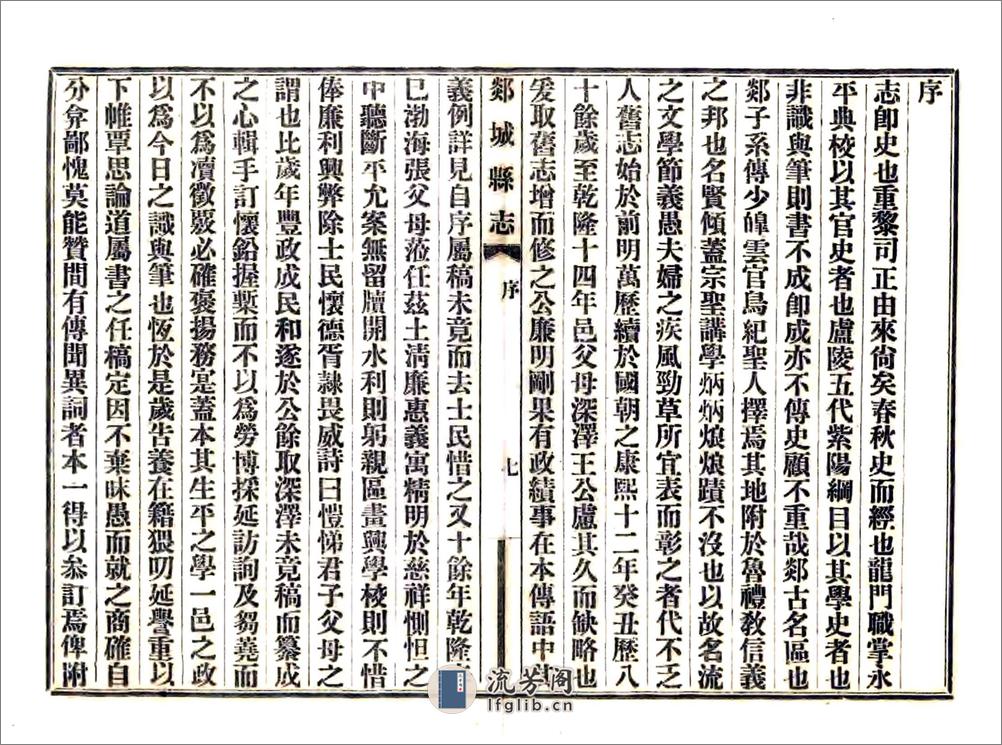 序
志卽史也重黎司正由來尚矣春秋史而經也龍門職掌永
平典校以其官史者也盧陵五代紫陽綱目以其學史者也
非識與筆則書不成卽成亦不傳史顧不重哉郯古名區也
郯子系傳少皥雲官鳥紀聖人擇焉其地附於魯禮敎信義
之邦也名賢傾蓋宗聖講學炳炳烺烺蹟不沒也以故名流
之文學節義愚夫婦之疾風勁草所宜表而彰之者代不乏
人舊志始於前明萬歷續於國朝之康熙十二年癸丑歷八
十餘歲至乾隆十四年邑父母深澤王公慮其久而缺略也
爰取舊志增而修之公廉明剛果有政績事在本傳語中其
郯城縣志
序
七
義例詳見自序屬稿未竟而去士民惜之又十餘年乾隆
巳渤海張父母蒞任茲土淸廉惠義寓精明於慈祥惻怛之
中聽斷平允案無留牘開水利則躬親區畫興學校則不惜
俸廉利興弊除士民懷德胥隸畏威詩曰愷悌君子父母之
謂也比歲年豐政成民和遂於公餘取深澤未竟稿而纂成
之心輯手訂懷鉛握槧而不以爲勞博採延訪詢及芻蕘而
不以爲凟徵覈必確褒揚務寔蓋本其生平之學一邑之政
以爲今日之識與筆也恆於是歲吿養在籍猥叨延譽重以
下帷覃思論道屬書之任稿定因不棄昧愚而就之商確自
分弇鄙愧莫能贊間有傳聞異詞者本一得以叅訂焉俾附
流芳阁
lfglib.cn